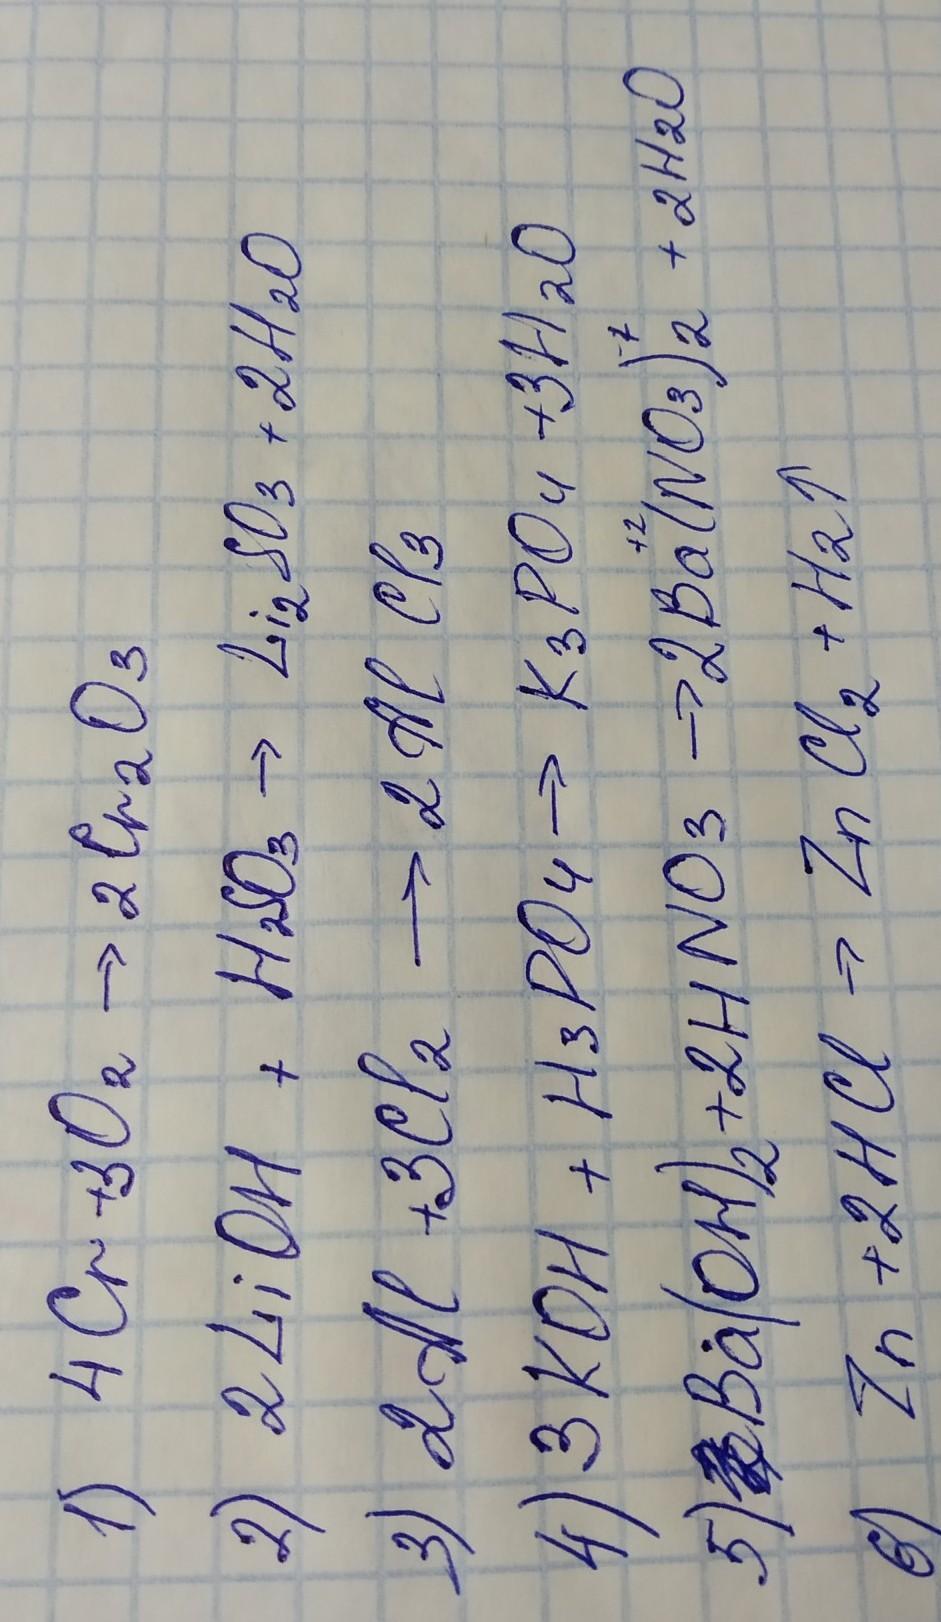 1) 4Cr + 3O2 → 2Cr2O3
2) 2LiOH + H2SO3 → Li2SO3 + 2H2O
3) 2Al + 3Cl2 → 2AlCl3
4) 3KOH + H3PO4 → K3PO4 + 3H2O
5) Ba(OH)2 + 2HNO3 → 2Ba+2(NO3)-12 + 2H2O
6) Zn + 2HCl → ZnCl2 + H2↑